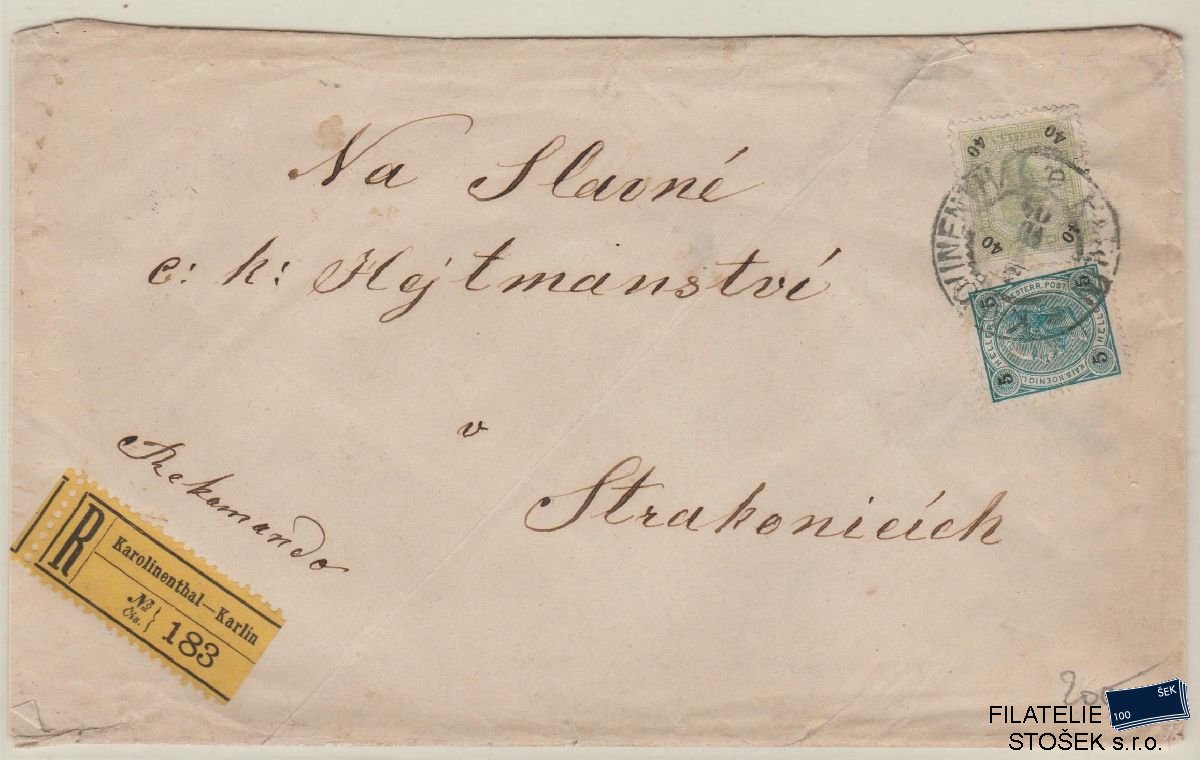 Na Slavné
c: k: Hejtmanství
v
Strakonicích
Rekomando
R
Karolinenthal—Karlin
No
Čis.
183
40 40
40 40
5 5
5 5
HELLER
HELLER
KAIS. KOENIGL.
OESTERR. POST
200
FILATELIE
STOŠEK s.r.o.
100 ŠEK